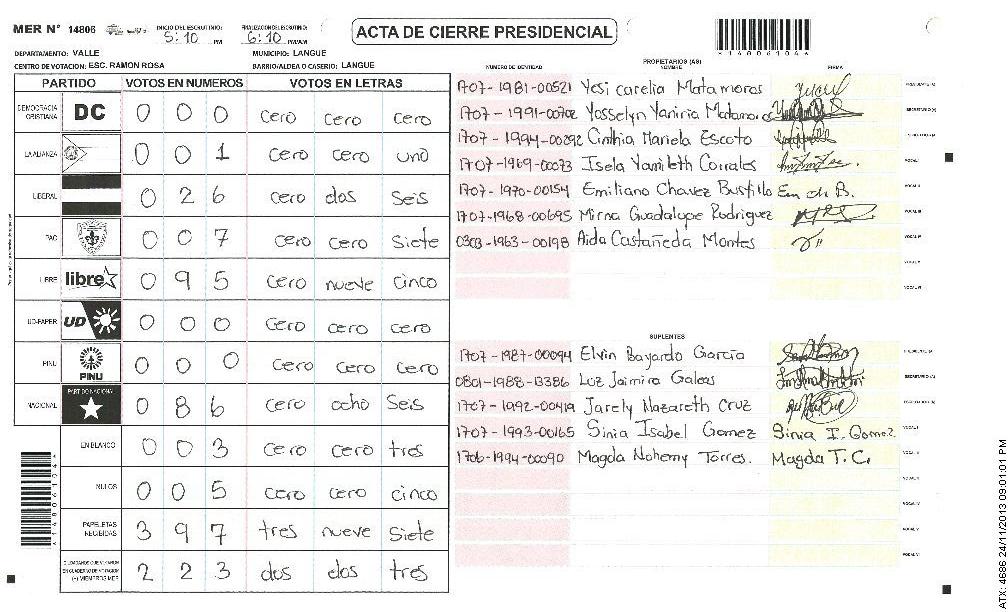 MER Nº 14806 INICIO DEL ESCRUTINIO: 5:10 PM FINALIZACION DEL ESCRUTINIO: 6:10 PM/AM ACTA DE CIERRE PRESIDENCIAL
DEPARTAMENTO: VALLE MUNICIPIO: LANGUE
CENTRO DE VOTACION: ESC. RAMON ROSA BARRIO/ALDEA O CASERIO: LANGUE
PARTIDO VOTOS EN NUMEROS VOTOS EN LETRAS
DEMOCRACIA CRISTIANA DC 0 0 0 cero cero cero
LA ALIANZA 0 0 1 cero cero uno
LIBERAL 0 2 6 cero dos seis
PAC 0 0 7 cero cero siete
LIBRE libre 0 9 5 cero nueve cinco
UD-FAPER UD 0 0 0 cero cero cero
PINU PINU 0 0 0 cero cero cero
NACIONAL PARTIDO NACIONAL 0 8 6 cero ocho seis
EN BLANCO 0 0 3 cero cero tres
NULOS 0 0 5 cero cero cinco
PAPELETAS RECIBIDAS 3 9 7 tres nueve siete
CIUDADANOS QUE VOTARON EN CUADERNO DE VOTACION (+) MIEMBROS MER 2 2 3 dos dos tres
*14806104*
PROPIETARIOS (AS)
NUMERO DE IDENTIDAD NOMBRE FIRMA
1707-1981-00521 Yesi carelia Matamoros
1707-1991-00702 Yosselyn Yaniria Matamoros
1707-1994-00292 Cinthia Mariela Escoto
1707-1969-00073 Isela Yamileth Corrales VOCAL I
1707-1970-00154 Emiliano Chavez Bustillo Em ch B. VOCAL II
1707-1968-00695 Mirna Guadalupe Rodriguez VOCAL III
0303-1963-00198 Aida Castañeda Montes VOCAL IV
VOCAL V
VOCAL VI
SUPLENTES
1707-1987-00094 Elvin Bayardo Garcia PRESIDENTE (A)
0801-1988-13386 Luz Jaimira Galeas SECRETARIO (A)
1707-1992-00419 Jarely Nazareth Cruz
1707-1993-00165 Sinia Isabel Gomez Sinia I. Gomez. VOCAL I
1706-1994-00090 Magda Nohemy Torres. Magda T.C. VOCAL II
VOCAL III
VOCAL IV
VOCAL V
VOCAL VI
*14806104*
ATX: 4686 24/11/2013 09:01:01 PM